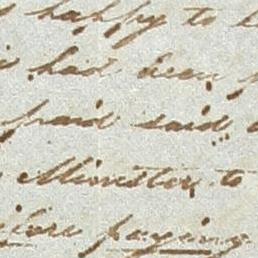 happy to
had been
paid said
Minister, to
fore paying